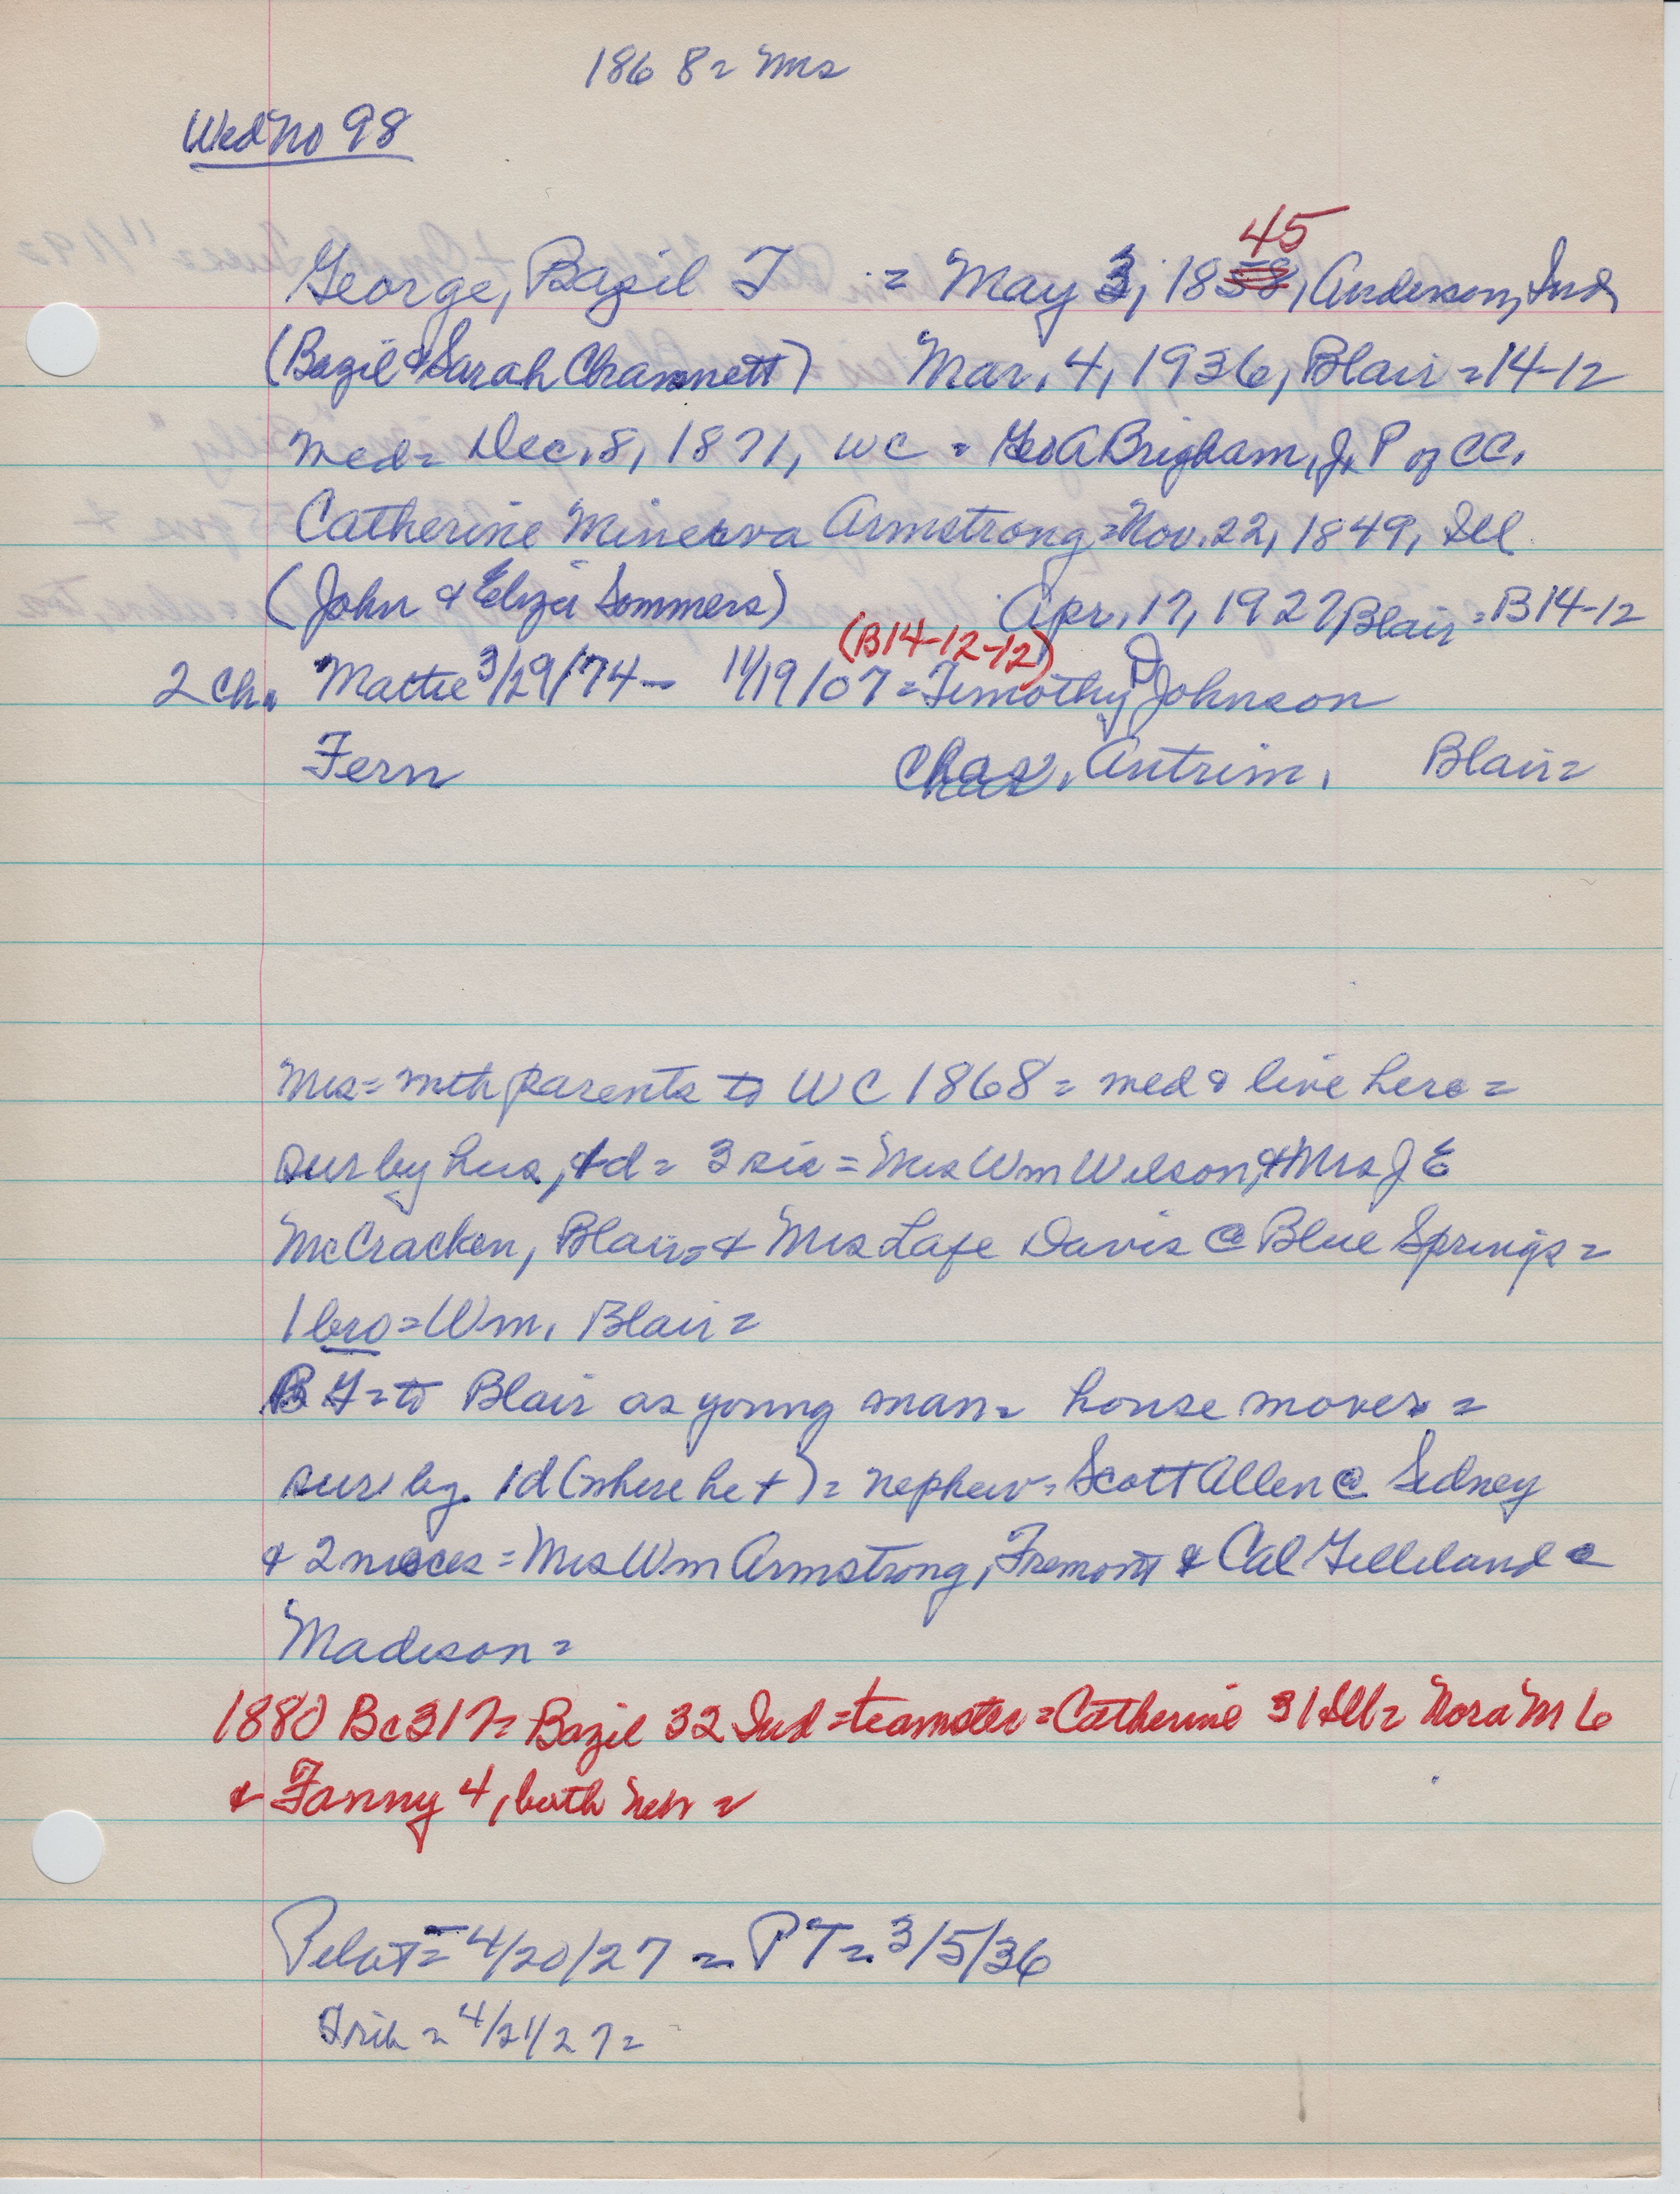 1868 = Mrs
Wed No 98
45
George, Bazil T = May 3, 1858, Anderson, Ind,
(Bazil & Sarah Chamnett) Mar, 4, 1936, Blair = 14-12
med = Dec, 8, 1871, WC = Geo A Brigham, J, P of CC,
Catherine Minerva Armstrong = Nov. 22, 1849, Ill
(John & Eliza Sommers) Apr, 17, 1927, Blair = B14-12
(B14-12-12)
2 Ch. Mattie 3/29/74 - 11/19/07 = Timothy D Johnson
Fern Chas, Antrim, Blair =
Mrs = with parents to WC 1868 = med & live here =
sur by hus, & d = 3 sis = Mrs Wm Wilson, & Mrs J E
McCracken, Blair = & Mrs Lafe Davis @ Blue Springs =
1 bro = Wm, Blair =
B T = to Blair as young man = house mover =
sur by 1 d (where he +) = nephew = Scott Allen @ Sidney
& 2 nieces = Mrs Wm Armstrong, Fremont & Cal Gilleland @
Madison =
1880 Bc 317 = Bazil 32 Ind = teamster = Catherine 31 Ill = Nora M 6
& Fanny 4, both Neb =
Pilot = 4/20/27 = PT = 3/5/36
Trib = 4/21/27 =